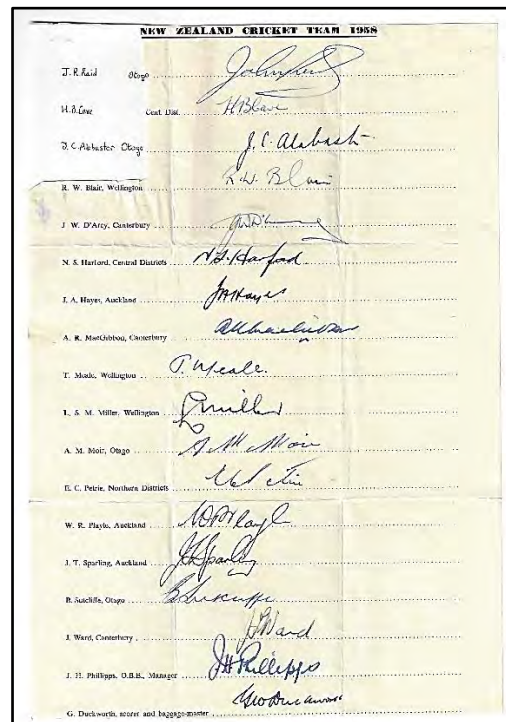 NEW ZEALAND CRICKET TEAM 1958
J. R. Reid Otago
H. B. Cave Cent. Dist. H B Cave
J. C. Alabaster Otago J. C. Alabaster
R. W. Blair, Wellington R. W. Blair
J. W. D'Arcy, Canterbury
N. S. Harford, Central Districts N. S. Harford
J. A. Hayes, Auckland J A Hayes
A. R. MacGibbon, Canterbury
T. Meale, Wellington T. Meale.
L. S. M. Miller, Wellington Miller
A. M. Moir, Otago A M Moir
E. C. Petrie, Northern Districts
W. R. Playle, Auckland W R Playle
J. T. Sparling, Auckland J T Sparling
B. Sutcliffe, Otago B Sutcliffe
J. Ward, Canterbury J Ward
J. H. Phillipps, O.B.E., Manager J H Phillipps
G. Duckworth, scorer and baggage-master